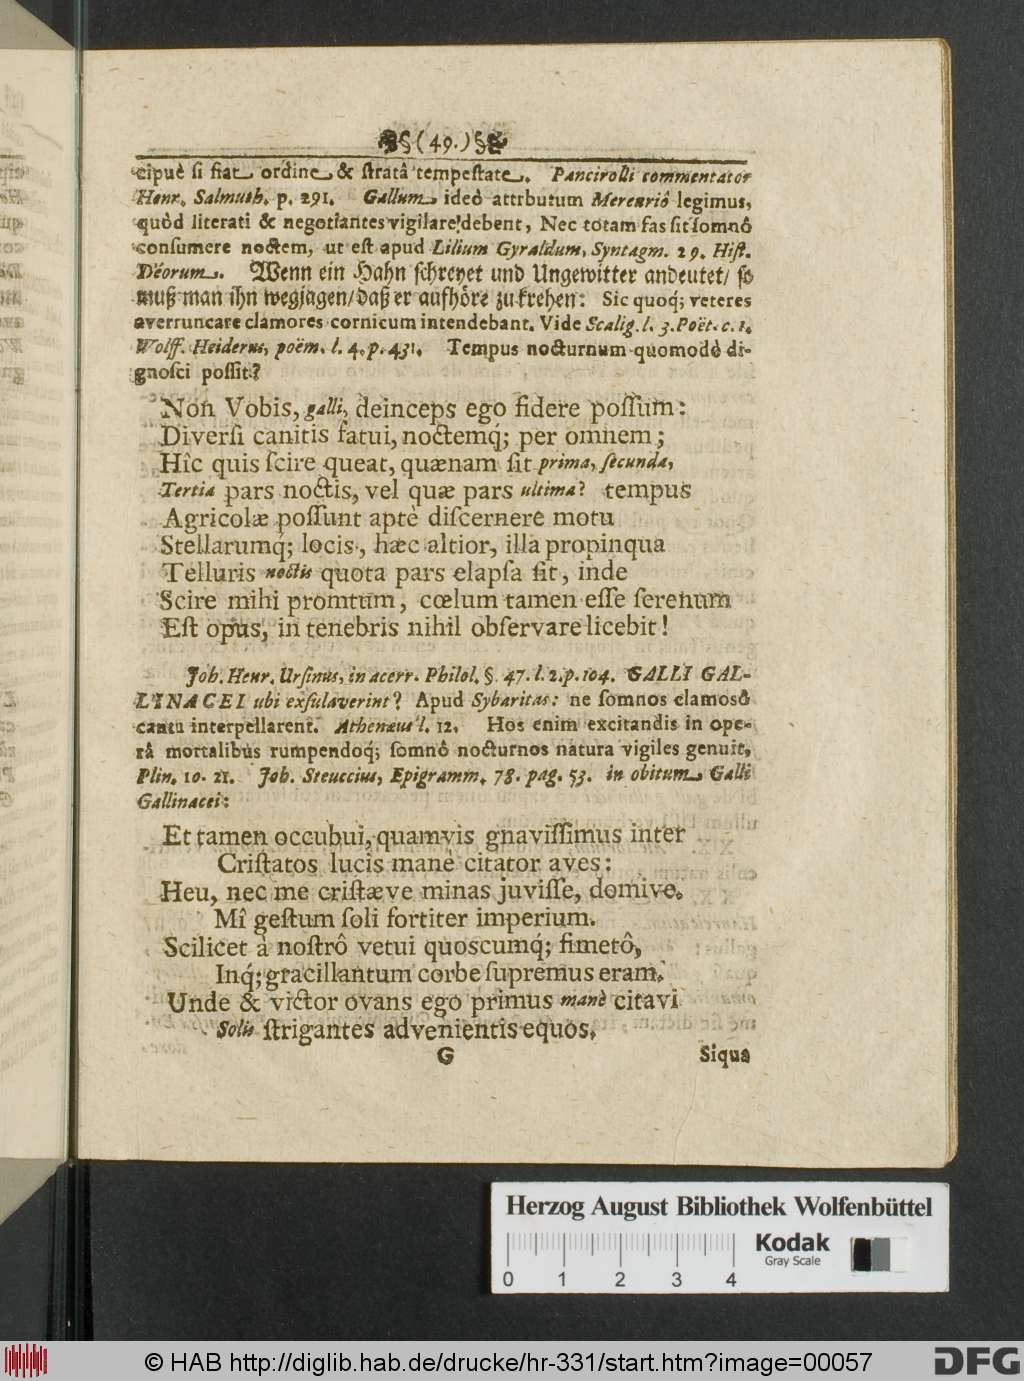 §(49.)§
cipuè si fiat ordine & stratâ tempestate. Pancirolli commentator
Henr. Salmuth. p. 291. Gallum ideò attrbutum Mercuriô legimus,
quòd literati & negotiantes vigilare debent, Nec totam fas sit somnô
consumere noctem, ut est apud Lilium Gyraldum, Syntagm. 29. Hist.
Deorum. Wenn ein Hahn schreyet und Ungewitter andeutet/ so
muß man ihn wegjagen/ daß er aufhöre zu krehen: Sic quoq́; veteres
averruncare clamores cornicum intendebant. Vide Scalig. l. 3. Poët. c. 1.
Wolff. Heiderus, poëm. l. 4. p. 431. Tempus nocturnum quomodò di-
gnosci possit?
Non Vobis, galli, deinceps ego fidere possum:
Diversi canitis fatui, noctemq́; per omnem;
Hîc quis scire queat, quænam sit prima, secunda,
Tertia pars noctis, vel quæ pars ultima? tempus
Agricolæ possunt aptè discernere motu
Stellarumq́; locis, hæc altior, illa propinqua
Telluris noctis quota pars elapsa sit, inde
Scire mihi promtum, cœlum tamen esse serenum
Est opus, in tenebris nihil observare licebit!
Joh. Henr. Ursinus, in acerr. Philol. §. 47. l. 2. p. 104. GALLI GAL-
LINACEI ubi exsulaverint? Apud Sybaritas: ne somnos clamosô
cantu interpellarent. Athenæus l. 12. Hos enim excitandis in ope-
râ mortalibus rumpendoq́; somnô nocturnos natura vigiles genuit,
Plin. 10. 21. Joh. Steuccius, Epigramm. 78. pag. 53. in obitum Galli
Gallinacei:
Et tamen occubui, quamvis gnavissimus inter
Cristatos lucis manè citator aves:
Heu, nec me cristæve minas juvisse, domive
Mî gestum soli fortiter imperium.
Scilicet à nostrô vetui quoscumq́; fimetô,
Inq́; gracillantum corbe supremus eram.
Unde & victor ovans ego primus manè citavi
Solis strigantes advenientis equos.
G Siqua
Herzog August Bibliothek Wolfenbüttel
Kodak
Gray Scale
0 1 2 3 4
© HAB http://diglib.hab.de/drucke/hr-331/start.htm?image=00057
DFG